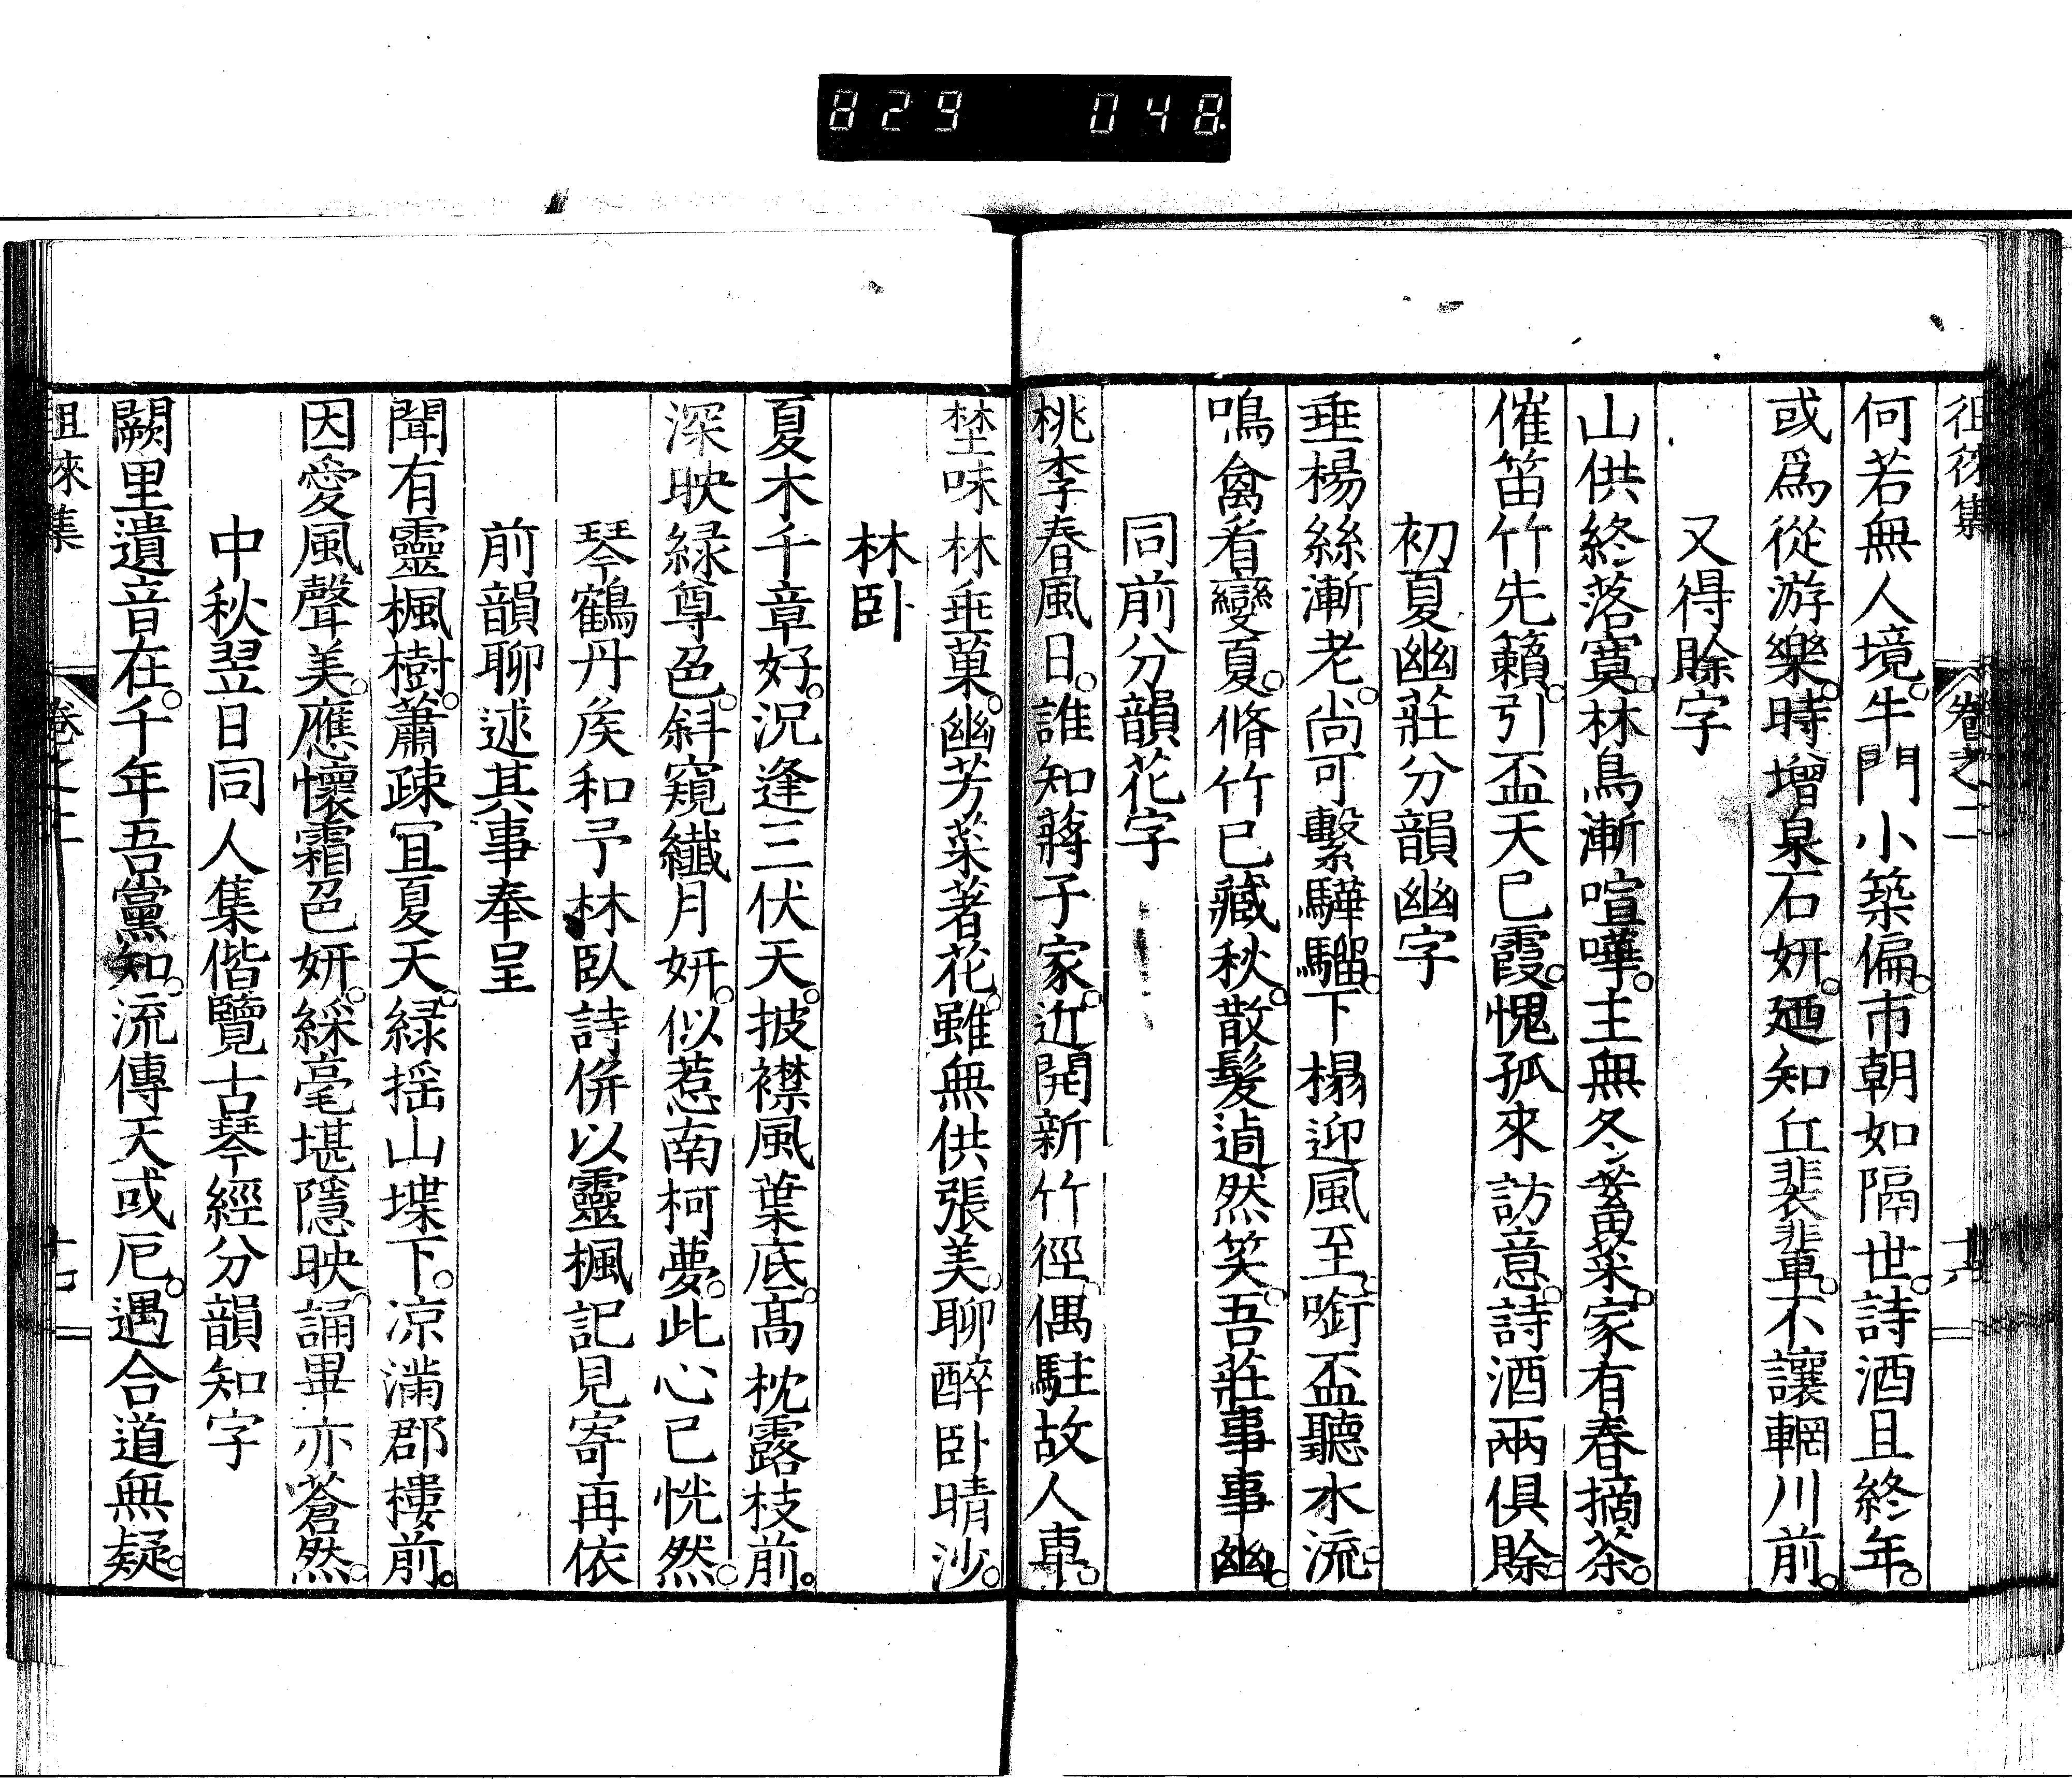 829 048
徂徠集 卷之二
何若無人境。牛門小築偏。市朝如隔世。詩酒且終年。
或爲從游樂。時增泉石妍。廼知丘裴輩。不讓輞川前。
又得賖字
山供終落寞。林鳥漸喧嘩。主無冬蓄菜。家有春摘茶。
催笛竹先籟。引盃天已霞。愧孤來訪意。詩酒兩俱賖。
初夏幽莊分韻幽字
垂楊絲漸老。尚可繫驊騮。下榻迎風至。啣盃聽水流。
鳴禽看變夏。脩竹已藏秋。散髮逌然笑。吾莊事事幽。
同前分韻花字
桃李春風日。誰知蔣子家。近開新竹徑。偶駐故人車。
埜味林垂菓。幽芳菜著花。雖無供張美。聊醉卧晴沙。
林卧
夏木千章好。況逢三伏天。披襟風葉底。高枕露枝前。
深映緑尊色。斜窺纖月妍。似惹南柯夢。此心已恍然。
琴鶴丹矦和予林臥詩併以靈楓記見寄再依
前韻聊述其事奉呈
聞有靈楓樹。蕭疎宜夏天。緑揺山堞下。凉滿郡樓前。
因愛風聲美。應懷霜色妍。綵毫堪隱映。誦畢亦蒼然。
中秋翌日同人集偕覽古琴經分韻知字
闕里遺音在。千年吾黨知。流傳天或厄。遇合道無疑。
徂徠集 卷之二